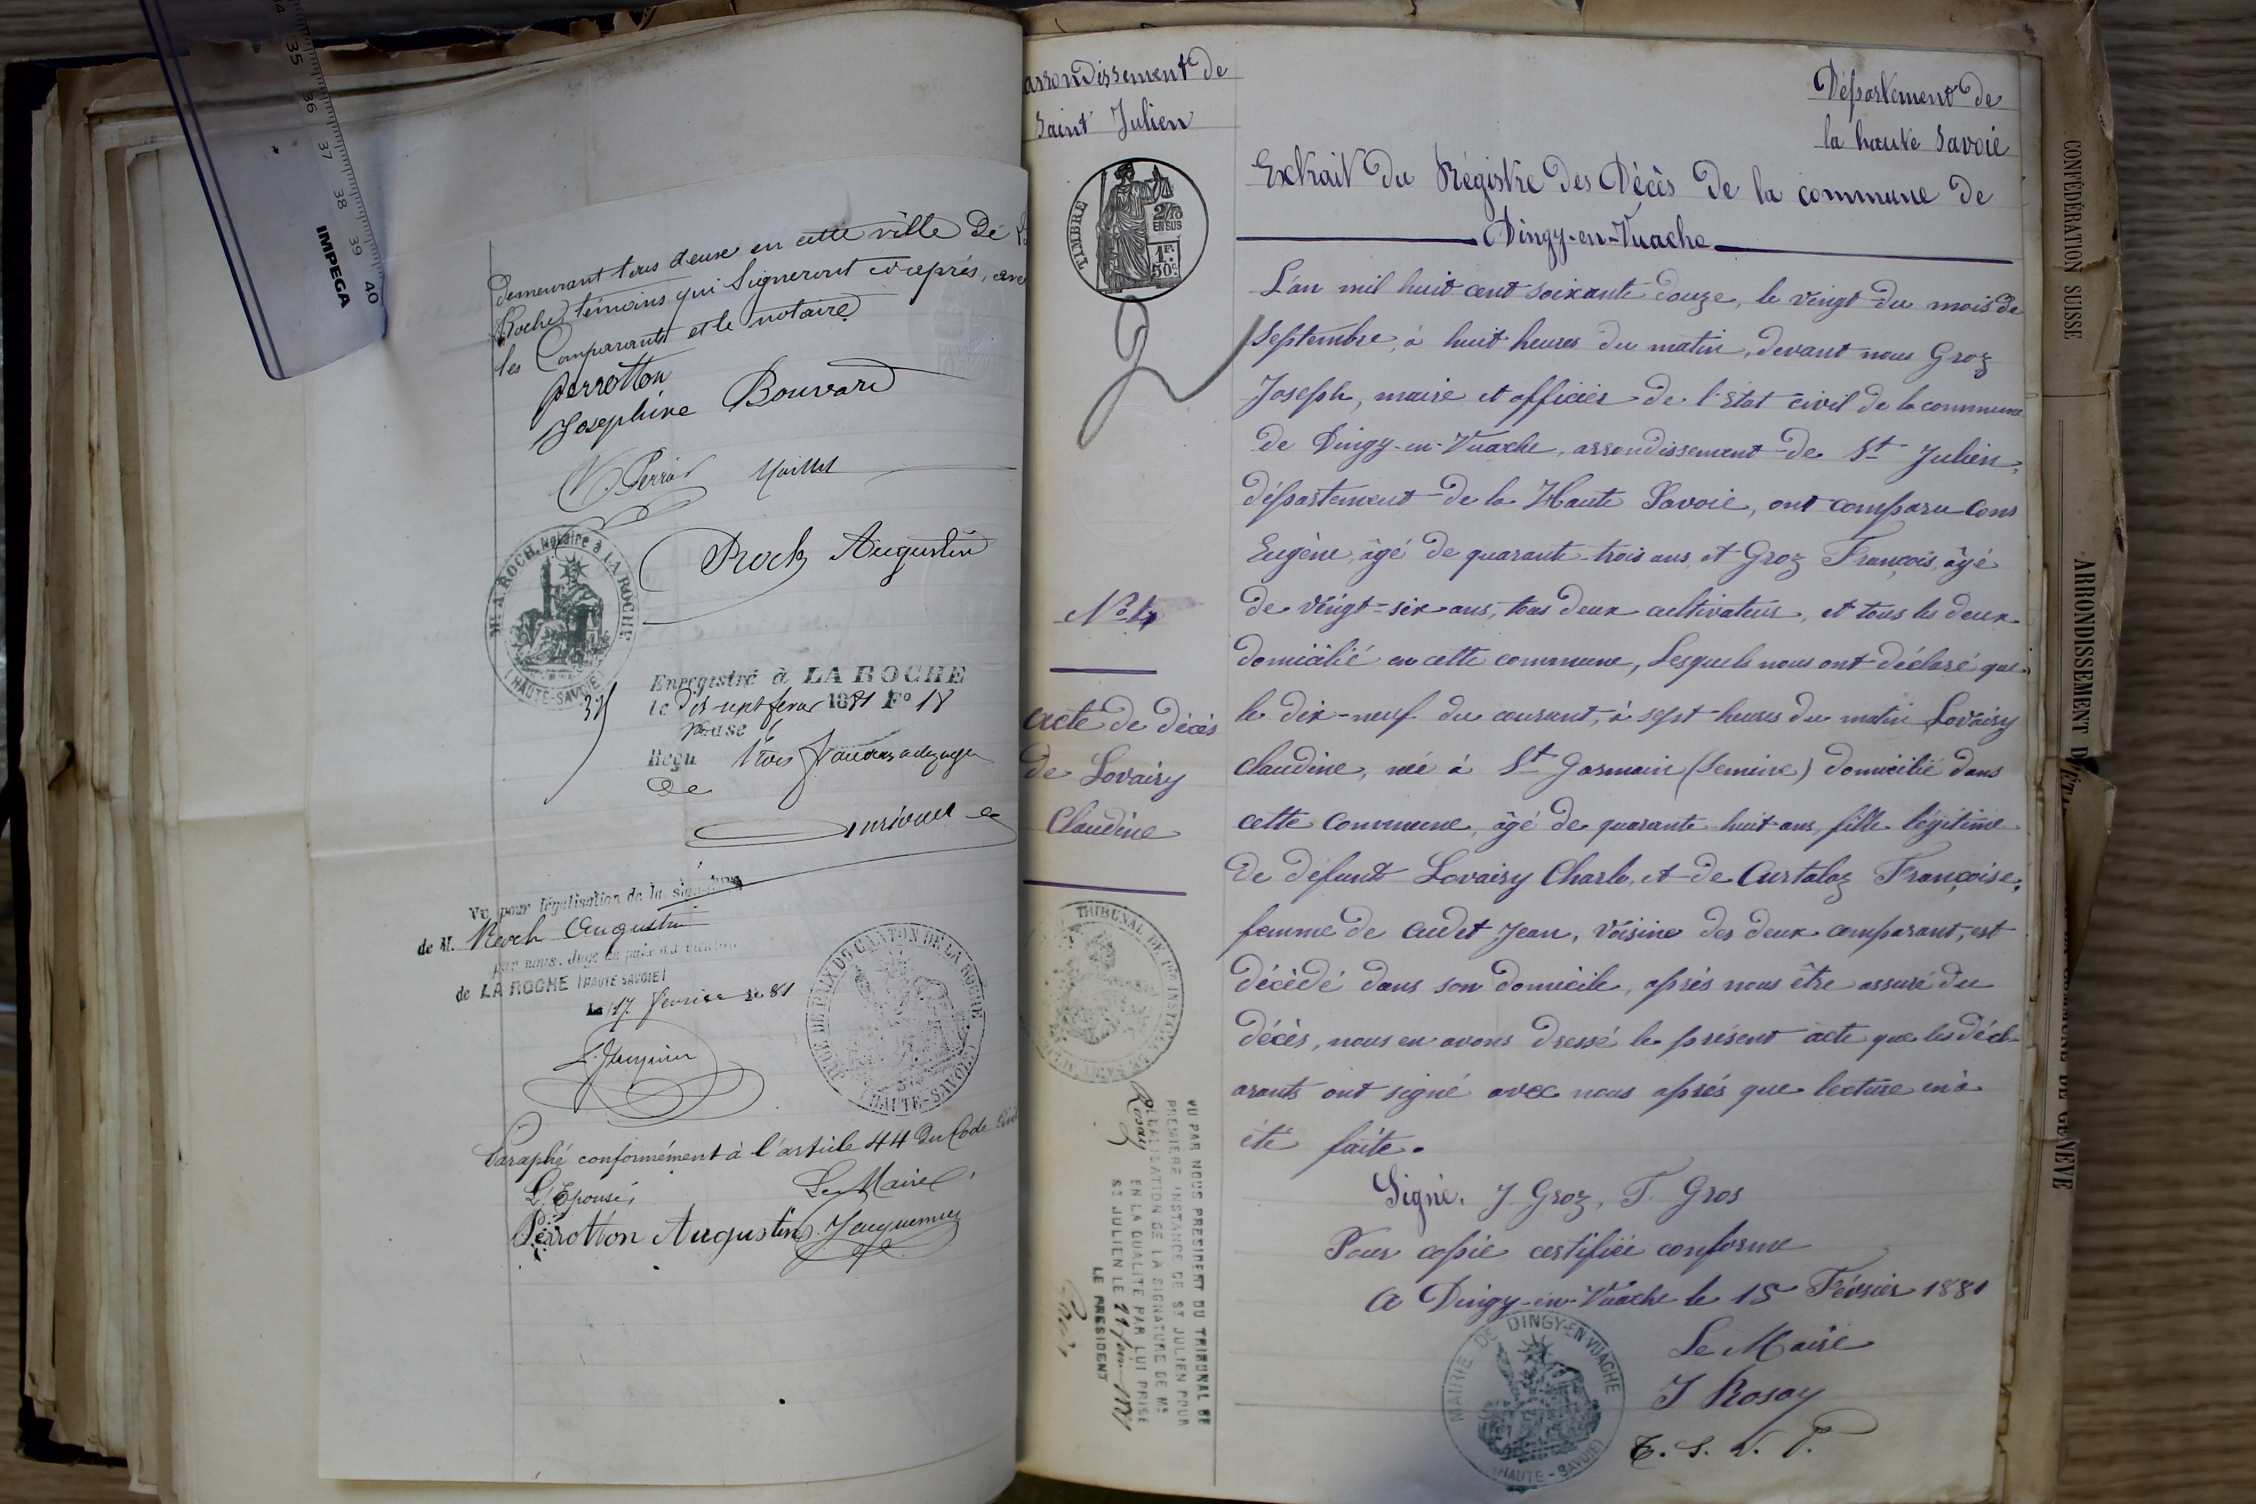 34 35 36 37 38 39 40
IMPEGA
demeurant tous deux en cette ville de La
Roche, témoins qui signeront ci-après, avec
les Comparants et le notaire
perrotton
Josephine Bouvard
Perria Maillet
Roch Augustin
Me A. ROCH, Notaire à LA ROCHE
(HAUTE-SAVOIE)
Enregistré à LA ROCHE
le dix-sept fevrier 1881 Fo 18
case 6
Reçu trois francs
De
Vu pour légalisation de la signature
de M. Roch Augustin
par nous, Juge de paix du canton
de LA ROCHE (HAUTE SAVOIE)
Le 17 fevrier 1881
JUGE DE PAIX DU CANTON DE LA ROCHE
(HAUTE-SAVOIE)
Paraphé conformément à l'article 44 du Code Civil
L'Epousé, Le Maire,
Perrotton Augustin
arrondissement de
Saint Julien
TIMBRE
2/10
EN SUS
1F.
50c
2
No 4
acte de décès
de Lovairy
Claudine
TRIBUNAL DE 1RE INSTANCE
VU PAR NOUS PRESIDENT DU TRIBUNAL DE
PREMIERE INSTANCE DE ST JULIEN POUR
LEGALISATION DE LA SIGNATURE DE MR
Rosay
EN LA QUALITE PAR LUI PRISE
ST JULIEN LE
LE PRESIDENT
Département de
la haute Savoie
Extrait du Régistre des Décès de la commune de
Dingy-en-Vuache
L'an mil huit cent soixante douze, le vingt du mois de
Septembre, à huit heures du matin, devant nous Groz
Joseph, maire et officier de l'Etat civil de la commune
de Dingy-en-Vuache, arrondissement de St Julien,
département de la Haute Savoie, ont comparu Cons
Eugène, âgé de quarante-trois ans, et Groz François, âgé
de vingt-six ans, tous deux cultivateurs, et tous les deux
domicilié en cette commune, Lesquels nous ont déclaré que
le dix-neuf du courant, à sept heures du matin Lovairy
Claudine, née à St Garmain (Semine) domicilié dans
cette Commune, âgé de quarante huit ans, fille légitime
de défunt Lovairy Charle, et de Curtalaz Françoise,
femme de Cudet Jean, Voisine des deux comparant, est
décédé dans son domicile, après nous être assuré du
décès, nous en avons dressé le présent acte que les décl-
arants ont signé avec nous après que lecture en à
été faite.
Signé, J. Groz, F. Gros
Pour copie certifiée conforme
A Dingy-en-Vuache le 15 Février 1881
Le Maire
J Rosay
MAIRIE DE DINGY-EN-VUACHE
(HAUTE-SAVOIE)
CONFÉDÉRATION SUISSE
ARRONDISSEMENT D'ÉTAT
DE GENÈVE